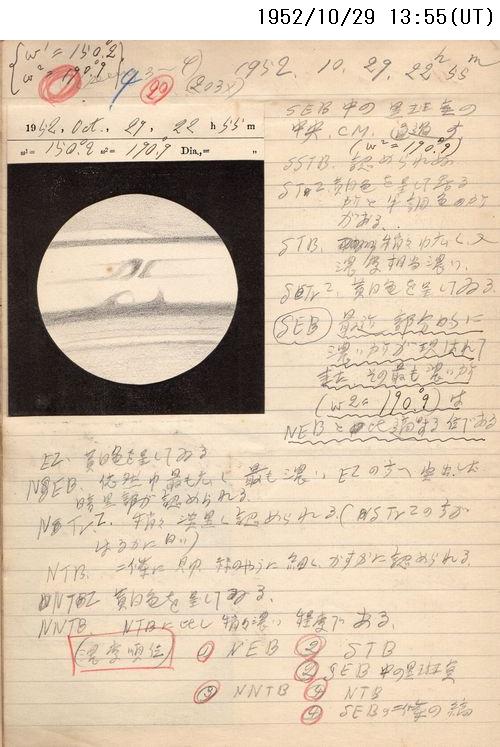 1952/10/29 13:55(UT)
ω¹ = 150.°2
ω² = 190.°9
(203×)
1952. 10. 29. 22h 55m
1952, Oct., 29, 22 h 55 m
ω¹= 150.°2 ω²= 190.°9 Dia.,= "
SEB 中の黒斑点の
中央、C.M. 通過す
(ω² = 190.°9)
SSTB. 認められぬ
がある.
STB. 稍々巾広くて
濃度相当濃い.
STrZ. 黄白色を呈してゐる
SEB 最近 部分的に
濃い所が現はれて
来た その最も濃い所
(ω2 = 190.°9) は
NEB と 匹敵する位である
EZ. 黄白色を呈してゐる
NEB. 依然巾最も広く 最も濃い. EZ の方へ突出した
暗黒部が認められる.
NTrZ. 稍々淡黒く認められる (STrZ の方が
はるかに白い)
NTB. 二條に見え 線のやうに細く、かすかに認められる
NTZ 黄白色を呈してゐる.
NNTB NTB に比し 稍々濃い 程度である.
濃度順位 ① NEB ② STB
② SEB 中の黒斑点
③ NNTB ③ NTB
④ SEB の二條の縞